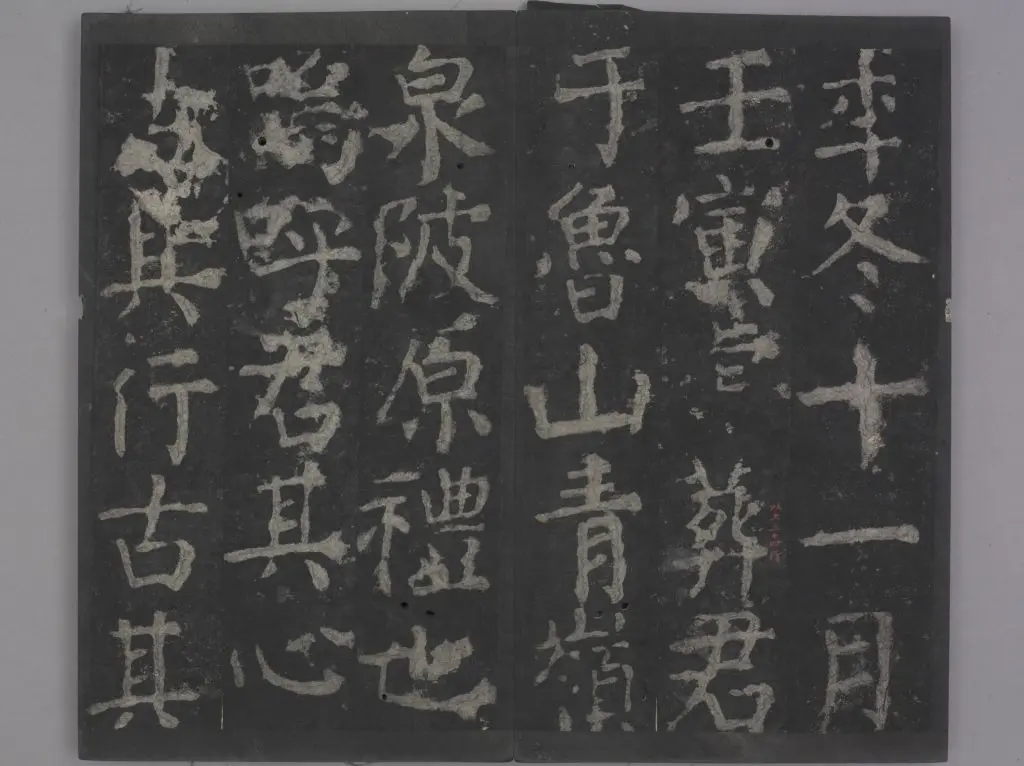 秊冬十一月
壬寅葬君
于魯山青嶺
泉陂原禮也
嗚呼君其心
古其行古其